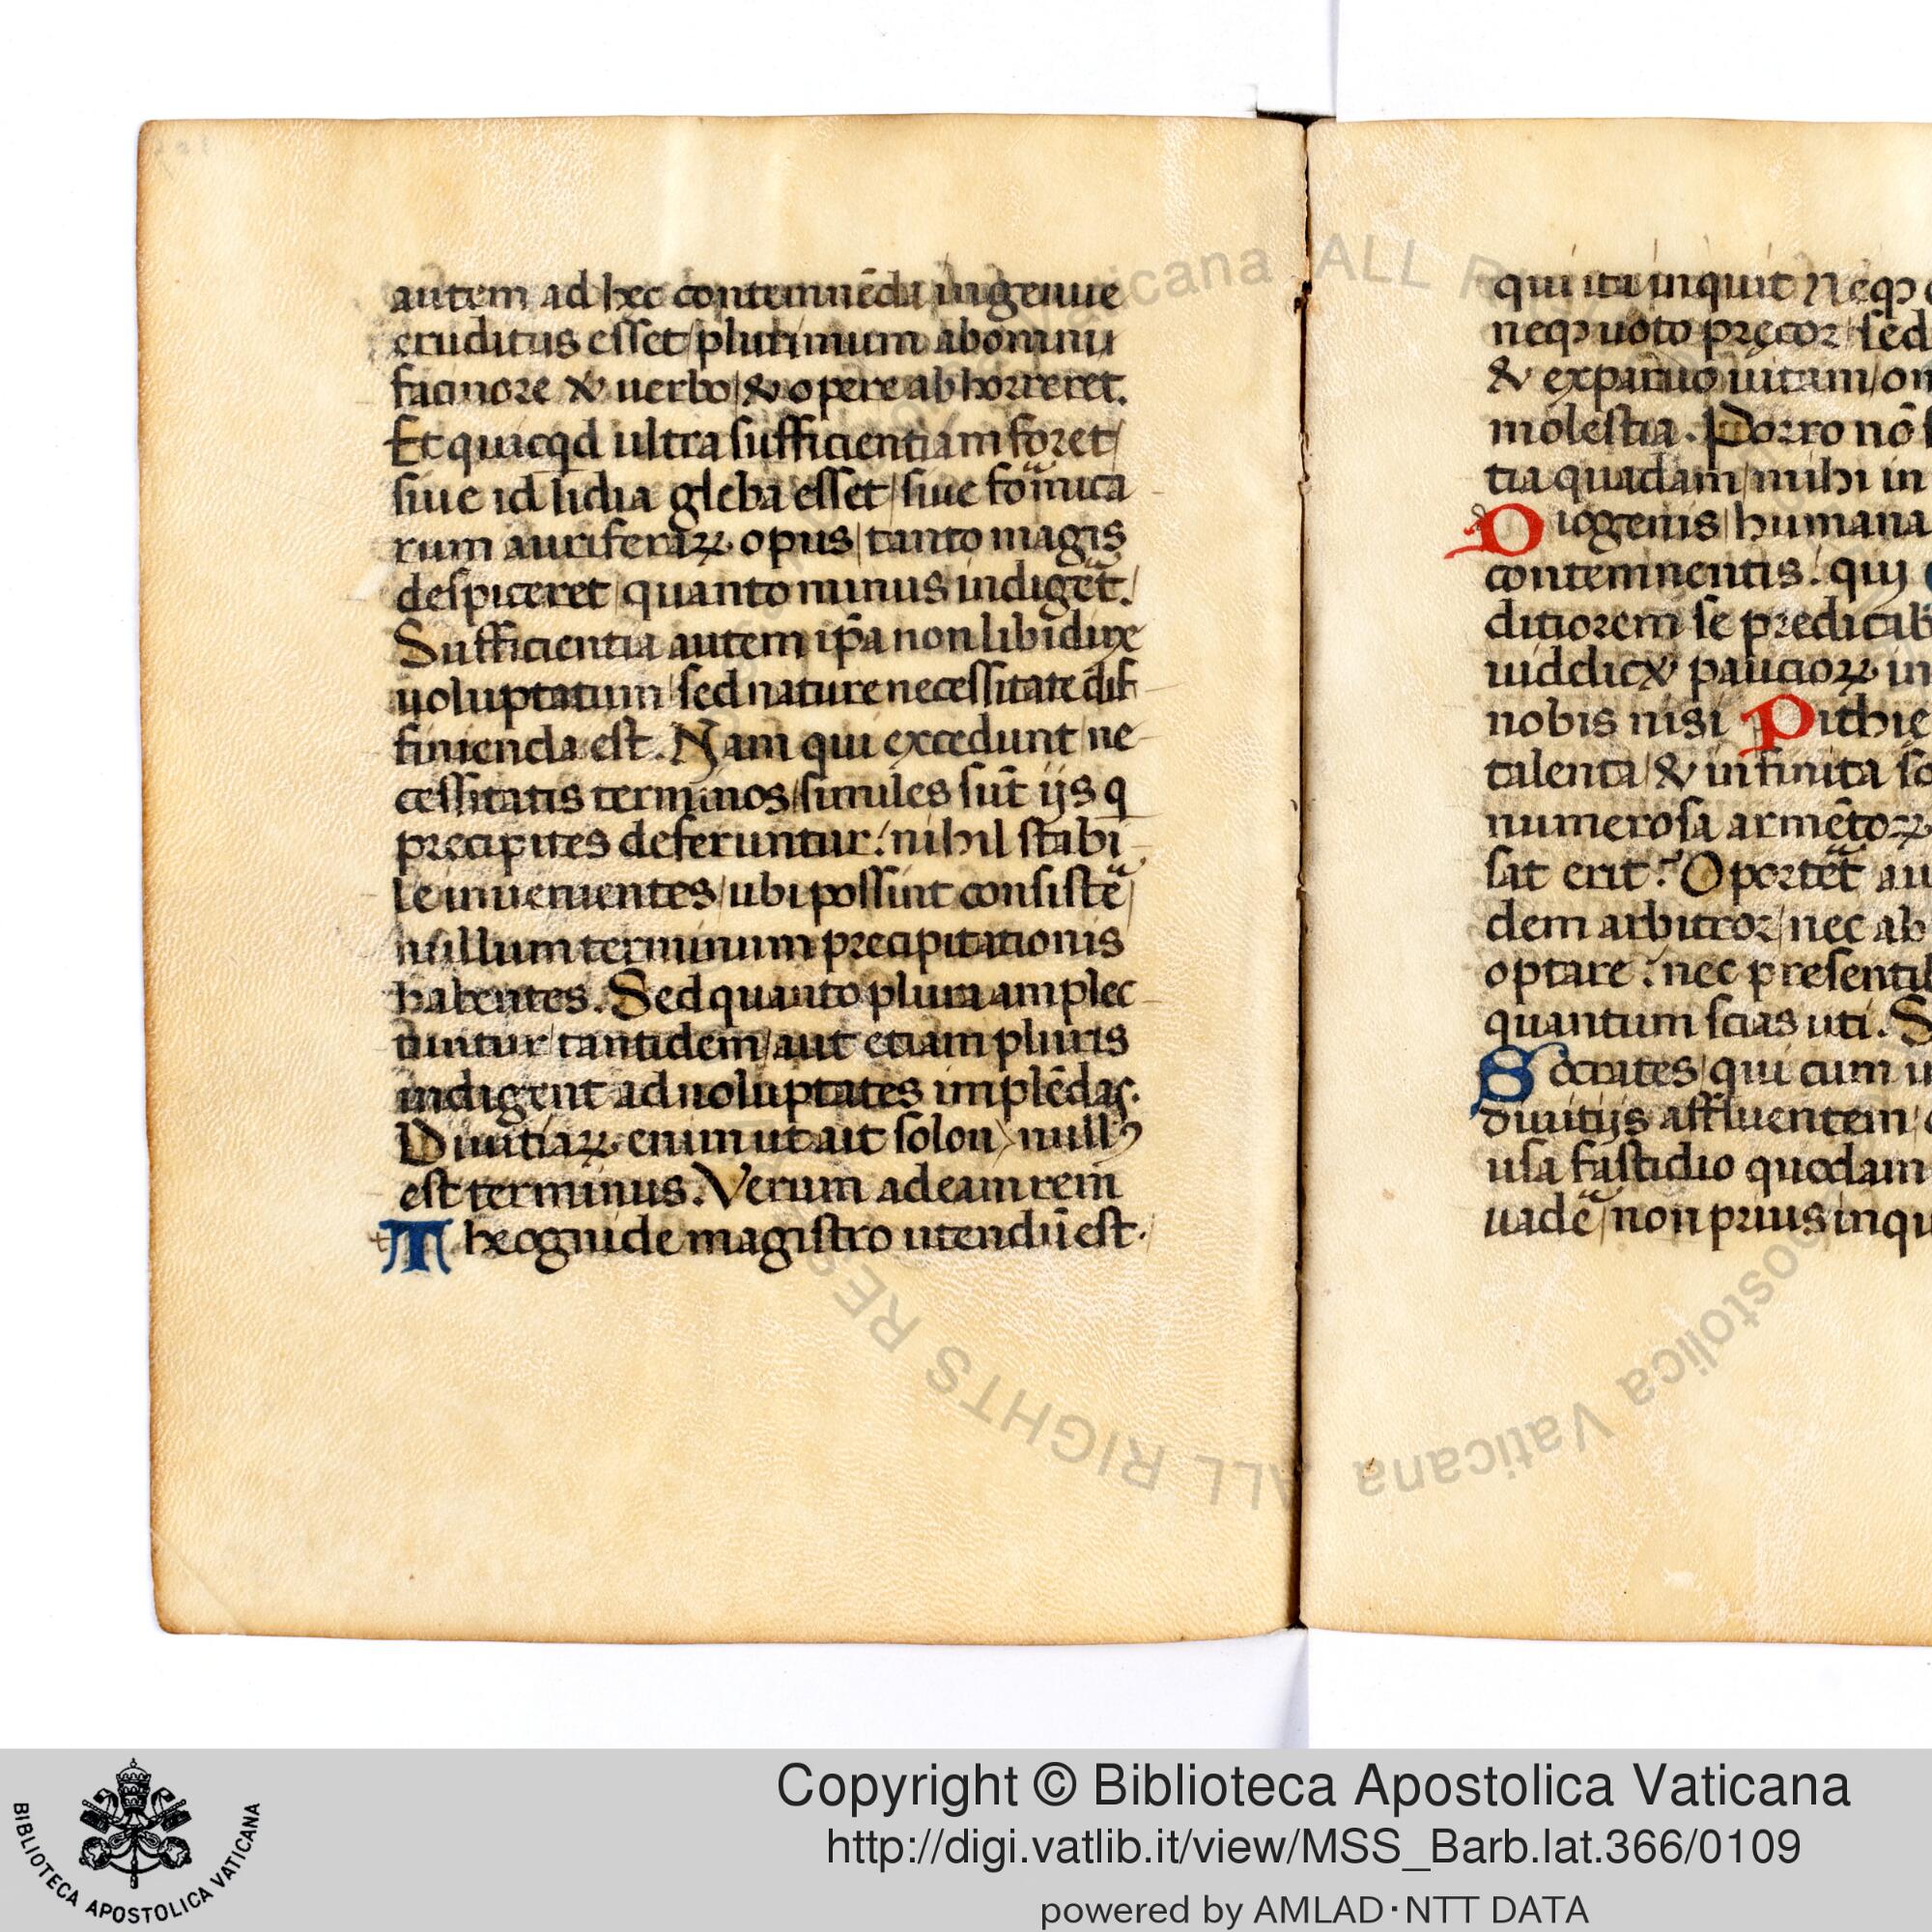 autem ad hec contemnēda ingenue
eruditus esset/plurimum ab omni
facinore & uerbo/& opere abhorreret.
Et quicqd ultra sufficientiam foret/
siue id lidia gleba esset/siue fomica
rum auriferaꝝ opus/tanto magis
despiceret/quanto minus indiget.
Sufficientia autem ip̄a non libidine
uoluptatum/sed nature necessitate dif
finienda est. Nam qui excedunt/ne
cessitatis terminos/similes sūt ijs q
precipites deferuntur: nihil stabi
le inuenientes/ubi possint consistē/
nullum terminum precipitationis
habentes. Sed quanto plura amplec
tuntur/tantidem/aut etiam pluris
indigent ad uoluptates implēdas.
Diuitiaꝝ enim ut ait solon/nullꝰ
est terminus. Verum ad eam rem
Theognide magistro utendū est.
qui ita inquit Neqꝫ
neqꝫ uoto pręcor/sed
& exparuo uitam/om
molestia. Porro nō
tia quadam/mihi in
Diogenis/humana
contemnentis: qui
ditiorem se predicab
uiddicꝫ paucioꝝ in
nobis nisi Pithie
talenta/& infinita so
numerosa armētoꝝ
sat erit? Oportet au
dem arbitror/nec ab
optare: nec presentib
quantum scias uti. S
Socrates/qui cum u
diuitijs affluentem/
usa fastidio quodam
uadē/non prius inqu
Vaticana ALL R
ALL RIGHTS RES
Apostolica Vaticana
BIBLIOTECA APOSTOLICA VATICANA
Copyright © Biblioteca Apostolica Vaticana
http://digi.vatlib.it/view/MSS_Barb.lat.366/0109
powered by AMLAD·NTT DATA